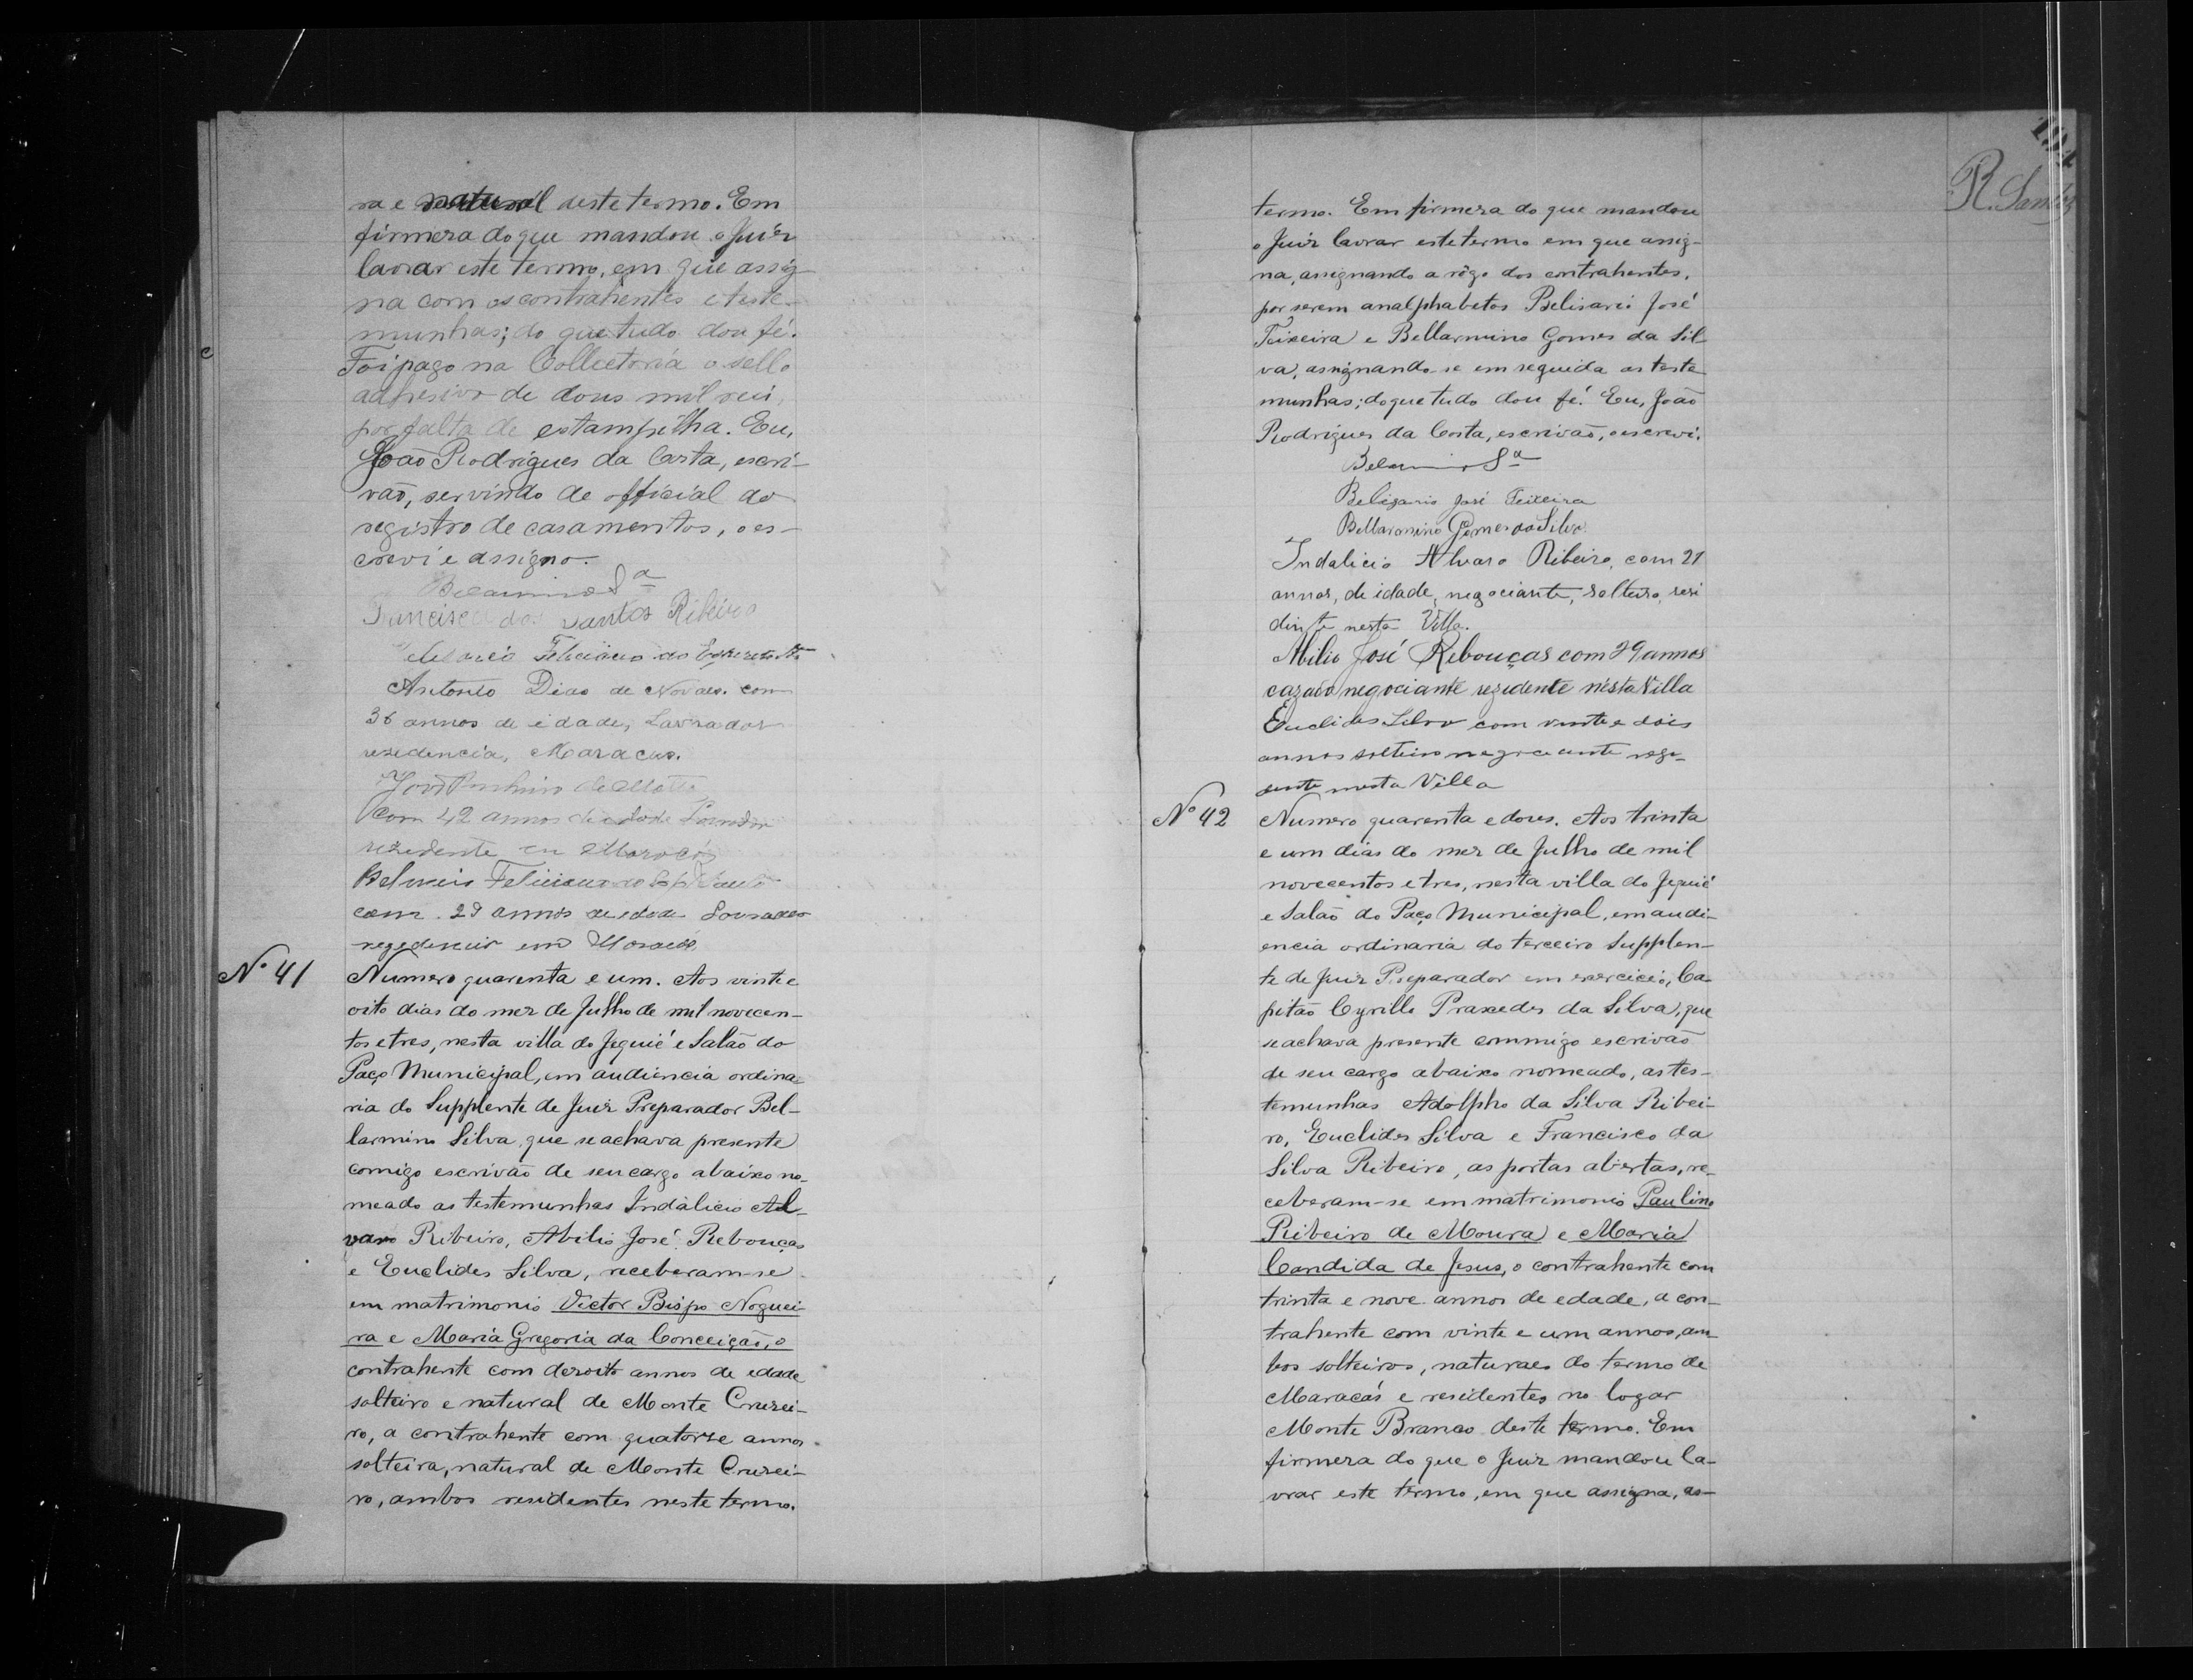 ra e natural deste termo. Em
firmeza do que mandou o Juiz
lavrar este termo, em que assig-
na com os contrahentes e teste-
munhas; do que tudo dou fé.
Foi pago na Collectoria o sello
adhesivo de dous mil reis,
por falta de estampilha. Eu,
João Rodrigues da Costa, escri-
vão, servindo de official do
registro de casamentos, o es-
crevi e assigno.
Belarmino Sª
Francisco dos Santos Ribeiro
Feliciano do
Antonio Dias de Novaes. com
36 annos de idade, Lavrador
residencia, Maracas.
com 42 annos de idade Lavrador
rezidente em Maracás
Feliciano do
com 29 annos de edade Lavrador
rezedencia em Maracás
Nº 41
Numero quarenta e um. Aos vinte e
oito dias do mez de Julho de mil novecen-
tos e tres, nesta villa do Jequié e Salão do
Paço Municipal, em audiencia ordina-
ria do Supplente de Juiz Preparador Bel-
larmino Silva, que se achava presente
comigo escrivão de seu cargo abaixo no-
meado as testemunhas Indalicio Al-
varo Ribeiro, Abilio José Rebouças
e Euclides Silva, receberam-se
em matrimonio Victor Bispo Noguei-
ra e Maria Gregoria da Conceição, o
contrahente com dezoito annos de edade
solteiro e natural de Monte Cruzei-
ro, a contrahente com quatorze annos
solteira, natural de Monte Cruzei-
ro, ambos residentes neste termo.
191
R. Santos
termo. Em firmeza do que mandou
o Juiz lavrar este termo em que assig-
na, assignando a rôgo dos contrahentes,
por serem analphabetos Belisario José
Teixeira e Bellarmino Gomes da Sil
va, assignando-se em seguida as teste
munhas; do que tudo dou fé. Eu, João
Rodrigues da Costa, escrivão, o escrevi.
Belarmino Sª
Belizario José Teixeira
Bellarmino Gomes da Silva
Indalicio Alvaro Ribeiro, com 21
annos, de idade, negociante, solteiro, resi
dente nesta Villa.
Abilio José Rebouças com 29 annos
cazado negociante rezidente nesta Villa
Euclides Silva com vinte e dois
annos solteiro negociante rezi-
dente nesta Villa
Nº 42
Numero quarenta e dous. Aos trinta
e um dias do mez de Julho de mil
novecentos e tres, nesta villa do Jequié
e Salão do Paço Municipal, em audi-
encia ordinaria do terceiro Supplen-
te de Juiz Preparador em exercicio, Ca-
pitão Cyrillo Praxedes da Silva, que
se achava presente commigo escrivão
de seu cargo abaixo nomeado, as tes-
temunhas Adolpho da Silva Ribei-
ro, Euclides Silva e Francisco da
Silva Ribeiro, as portas abertas, re-
ceberam-se em matrimonio Paulino
Ribeiro de Moura e Maria
Candida de Jesus, o contrahente com
trinta e nove annos de edade, a con-
trahente com vinte e um annos, am
bos solteiros, naturaes do termo de
Maracás e residentes no logar
Monte Branco deste termo. Em
firmeza do que o Juiz mandou la-
vrar este termo, em que assigna, as-